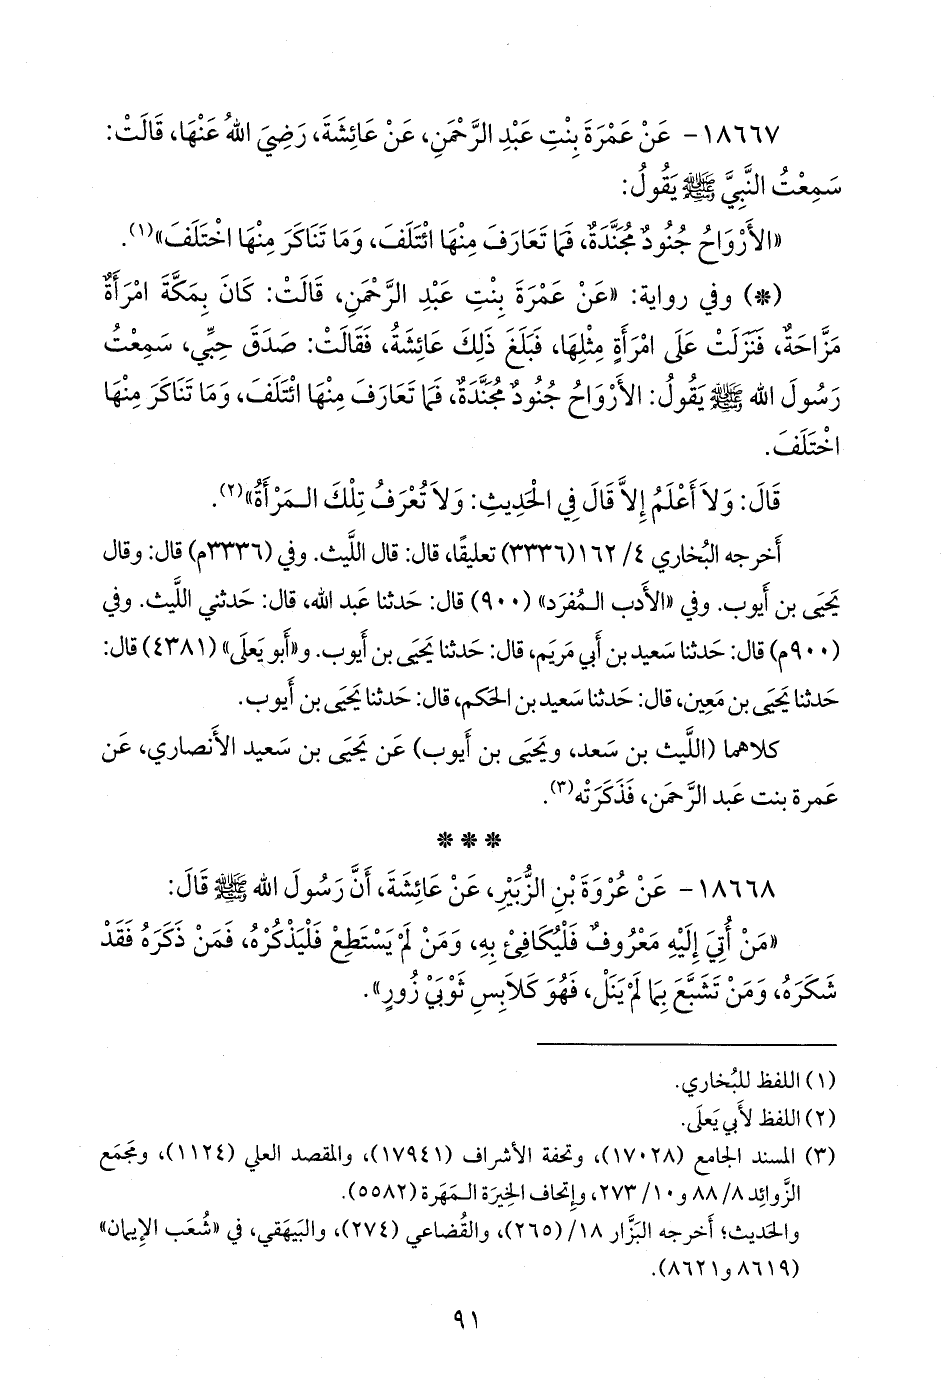 ١٨٦٦٧- عَنْ عَمْرَةَ بِنْتِ عَبْدِ الرَّحْمَنِ، عَنْ عَائِشَةَ، رَضِيَ اللهُ عَنْهَا، قَالَتْ:
سَمِعْتُ النَّبِيَّ ﷺ يَقُولُ:
«الأَرْوَاحُ جُنُودٌ مُجَنَّدَةٌ، فَمَا تَعَارَفَ مِنْهَا ائْتَلَفَ، وَمَا تَنَاكَرَ مِنْهَا اخْتَلَفَ»(١).
(*) وفي رواية: «عَنْ عَمْرَةَ بِنْتِ عَبْدِ الرَّحْمَنِ، قَالَتْ: كَانَ بِمَكَّةَ امْرَأَةٌ
مَزَّاحَةٌ، فَنَزَلَتْ عَلَى امْرَأَةٍ مِثْلِهَا، فَبَلَغَ ذَلِكَ عَائِشَةُ، فَقَالَتْ: صَدَقَ حِبِّي، سَمِعْتُ
رَسُولَ الله ﷺ يَقُولُ: الأَرْوَاحُ جُنُودٌ مُجَنَّدَةٌ، فَمَا تَعَارَفَ مِنْهَا ائْتَلَفَ، وَمَا تَنَاكَرَ مِنْهَا
اخْتَلَفَ.
قَالَ: وَلاَ أَعْلَمُ إِلاَّ قَالَ فِي الْحَدِيثِ: وَلاَ تُعْرَفُ تِلْكَ الـمَرْأَةُ»(٢).
أَخرجه البُخاري ٤/ ١٦٢ (٣٣٣٦) تعليقًا، قال: قال اللَّيث. وفي (٣٣٣٦م) قال: وقال
يَحيَى بن أَيوب. وفي «الأَدب الـمُفرَد» (٩٠٠) قال: حَدثنا عَبد الله، قال: حَدثني اللَّيث. وفي
(٩٠٠م) قال: حَدثنا سَعيد بن أَبي مَريَم، قال: حَدثنا يَحيَى بن أَيوب. و«أَبو يَعلَى» (٤٣٨١) قال:
حَدثنا يَحيَى بن مَعِين، قال: حَدثنا سَعيد بن الحَكم، قال: حَدثنا يَحيَى بن أَيوب.
كلاهما (اللَّيث بن سَعد، ويَحيَى بن أَيوب) عَن يَحيَى بن سَعيد الأَنصاري، عَن
عَمرة بنت عَبد الرَّحمَن، فَذَكَرَتْه(٣).
* * *
١٨٦٦٨- عَنْ عُرْوَةَ بْنِ الزُّبَيْرِ، عَنْ عَائِشَةَ، أَنَّ رَسُولَ الله ﷺ قَالَ:
«مَنْ أُتِيَ إِلَيْهِ مَعْرُوفٌ فَلْيُكَافِئْ بِهِ، وَمَنْ لَمْ يَسْتَطِعْ فَلْيَذْكُرْهُ، فَمَنْ ذَكَرَهُ فَقَدْ
شَكَرَهُ، وَمَنْ تَشَبَّعَ بِمَا لَمْ يَنَلْ، فَهُوَ كَلاَبِسِ ثَوْبَيْ زُورٍ».
(١) اللفظ للبُخاري.
(٢) اللفظ لأَبي يَعلَى.
(٣) المسند الجامع (١٧٠٢٨)، وتحفة الأشراف (١٧٩٤١)، والمقصد العلي (١١٢٤)، ومَجمَع
الزَّوائِد ٨/ ٨٨ و١٠/ ٢٧٣، وإتحاف الخِيرَة الـمَهَرة (٥٥٨٢).
والحَديث؛ أَخرجه البَزَّار ١٨/ (٢٦٥)، والقُضاعي (٢٧٤)، والبَيهَقي، في «شُعَب الإيمان»
(٨٦١٩ و٨٦٢١).
٩١